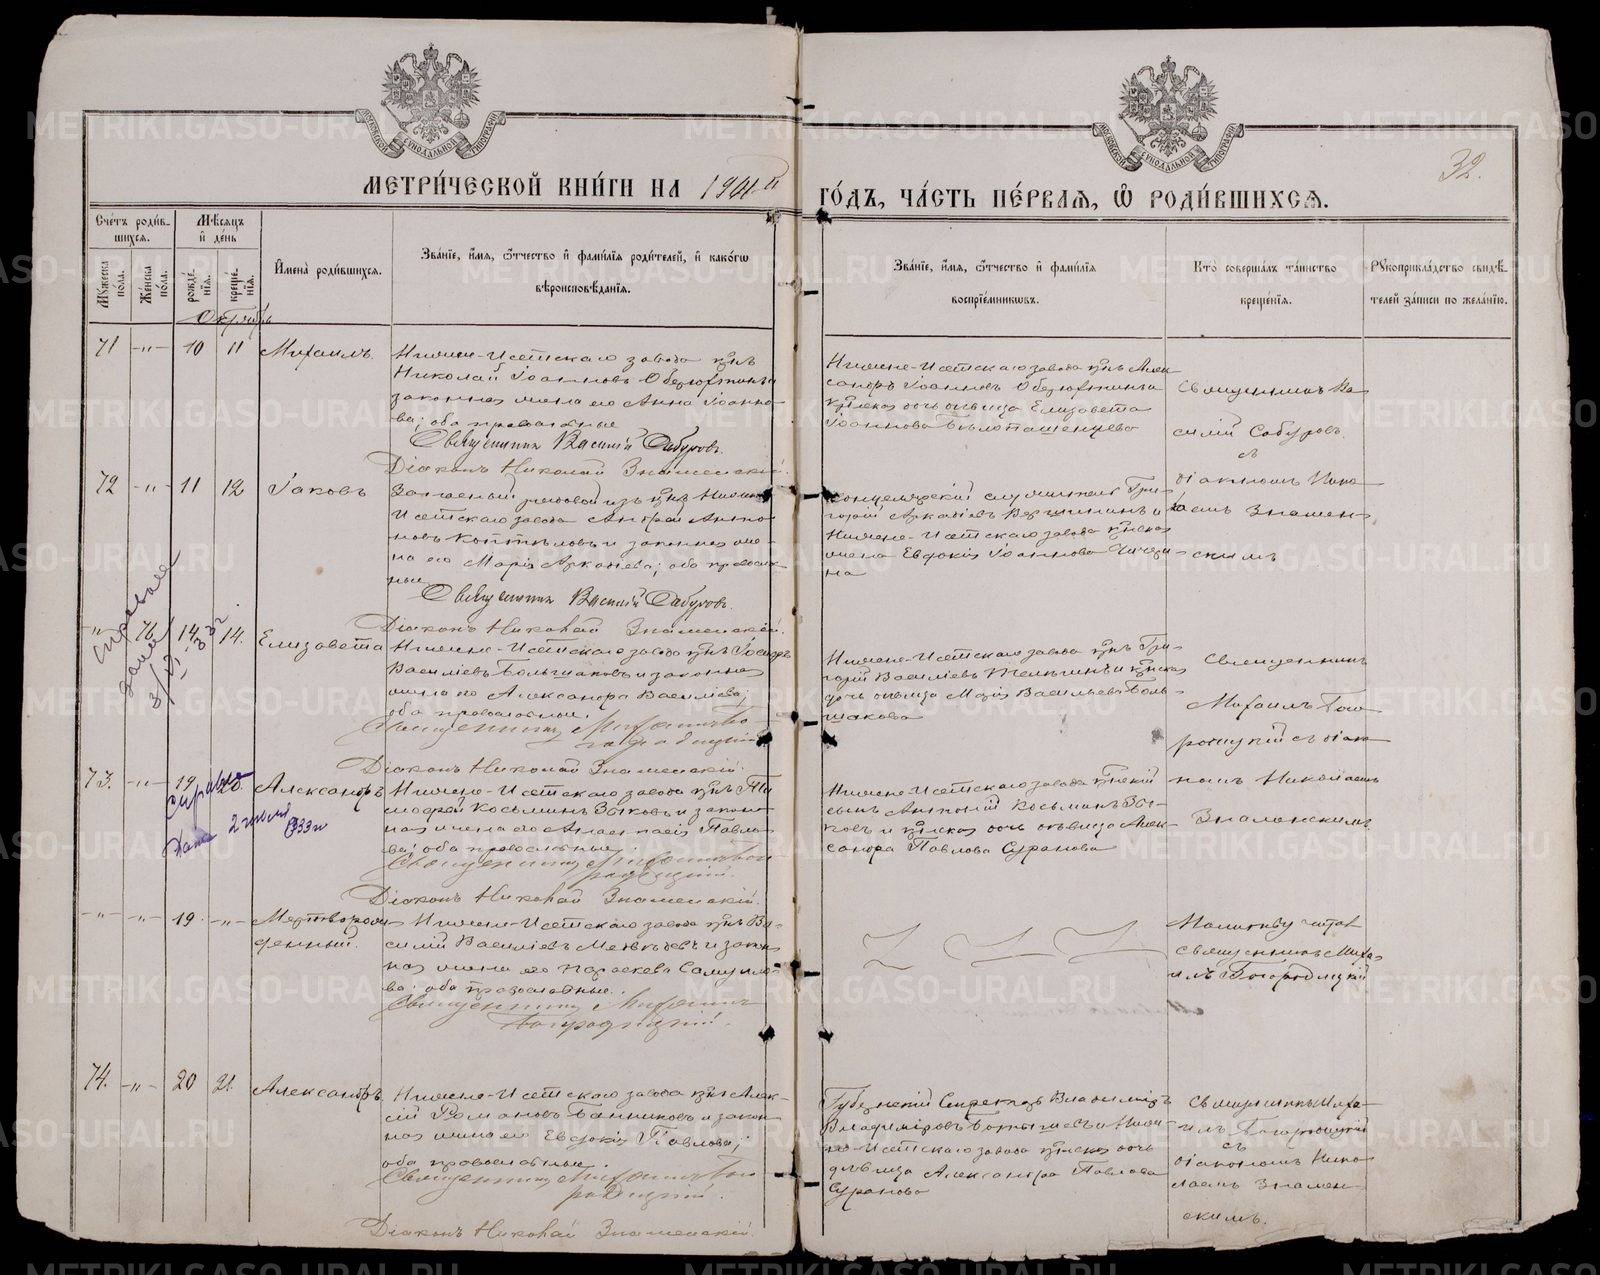 МОСКОВСКОЙ СУНОДАЛЬНОЙ ТИПОГРАФІИ
МОСКОВСКОЙ СУНОДАЛЬНОЙ ТИПОГРАФІИ
32.
МЕТРИ́ЧЕСКОЙ КНИ́ГИ НА 1901-й ГО́ДЪ, ЧА́СТЬ ПЕ́РВАЯ, Ѿ РОДИ́ВШИХСЯ.
Сче́тъ роди́в-
шихся.
Мѣсяцъ
и де́нь
Мꙋ́жеска по́ла.
Же́нска по́ла.
рожде́нїя.
креще́нїя.
И́мена роди́вшихся.
Зва́нїе, и́мя, ѻ́тчество и фами́лїя роди́телей, и како́гѡ
вѣроисповѣ́данїя.
Зва́нїе, и́мя, ѻ́тчество и фами́лїя
воспрїе́мниковъ.
Кто̀ соверша́лъ та́инство
креще́нїя.
Рꙋкоприкла́дство свидѣ́-
телей за́писи по жела́нїю.
Октябрь
71 -"- 10 11 Михаилъ.
Нижне-Исетскаго завода
Николай Іоанновъ Оберюхтинъ и
законная жена его Анна Іоанно-
ва; оба православные
Священникъ Василій Сабуровъ.
Діаконъ Николай Знаменскій.
Нижне-Исетскаго завода Алек-
сандръ Іоанновъ Оберюхтинъ и
дочь дѣвица Елизавета
Іоаннова
Священникъ Ва-
силій Сабуровъ
съ
діакономъ Нико-
лаемъ Знамен-
скимъ
72 -"- 11 12 Іаковъ
Запасный рядовой изъ Нижне-
Исетскаго завода Андрей Анто-
новъ и законная же-
на его Марія; оба православ-
ные
Священникъ Василій Сабуровъ.
Діаконъ Николай Знаменскій.
Канцелярскій служитель Гри-
горій Аркадіевъ Вершининъ и
Нижне-Исетскаго завода
жена Евдокія Іоаннова
на
-"- 76 14. 14. Елизавета
справка
дана
Нижне-Исетскаго завода
Василіевъ Большаковъ и законная
жена его Александра Василіева;
оба православные.
Священникъ Михаилъ Бо-
городицкій
Діаконъ Николай Знаменскій.
Нижне-Исетскаго завода Гри-
горій Василіевъ и
дочь дѣвица Марія Васильева Боль-
шакова
Священникъ
Михаилъ Бого-
родицкій съ діако-
номъ Николаемъ
Знаменскимъ
73. -"- 19 20 Александръ
справка
дана 2 июля
1933 г
Нижне-Исетскаго завода Ти-
мофей Косьминъ Зыковъ и закон-
ная жена его Анастасія Павло-
ва; оба православные.
Священникъ Михаилъ Бого-
родицкій.
Діаконъ Николай Знаменскій.
Нижне-Исетскаго завода
сынъ Антоній Косьминъ Зы-
ковъ и дочь дѣвица Алек-
сандра Павлова Суранова
-"- -"- 19. -"- Мертворож-
денный.
Нижне-Исетскаго завода Ва-
силій Василіевъ Медвѣдевъ и закон-
ная жена его Параскева Самуило-
ва; оба православные.
Священникъ Михаилъ
Богородицкій.
Молитву читалъ
священникъ Миха-
илъ Богородицкій
74. -"- 20 21. Александръ.
Нижне-Исетскаго завода Алек-
сій Романовъ Банниковъ и закон-
ная жена его Евдокія Павлова;
оба православные.
Священникъ Михаилъ Бого-
родицкій.
Діаконъ Николай Знаменскій.
Губернскій Секретарь Владиміръ
Владиміровъ и Ниж-
не-Исетскаго завода дочь
дѣвица Александра Павлова
Суранова
Священникъ Миха-
илъ Богородицкій
съ
діакономъ Нико-
лаемъ Знамен-
скимъ.
METRIKI.GASO-URAL.RU